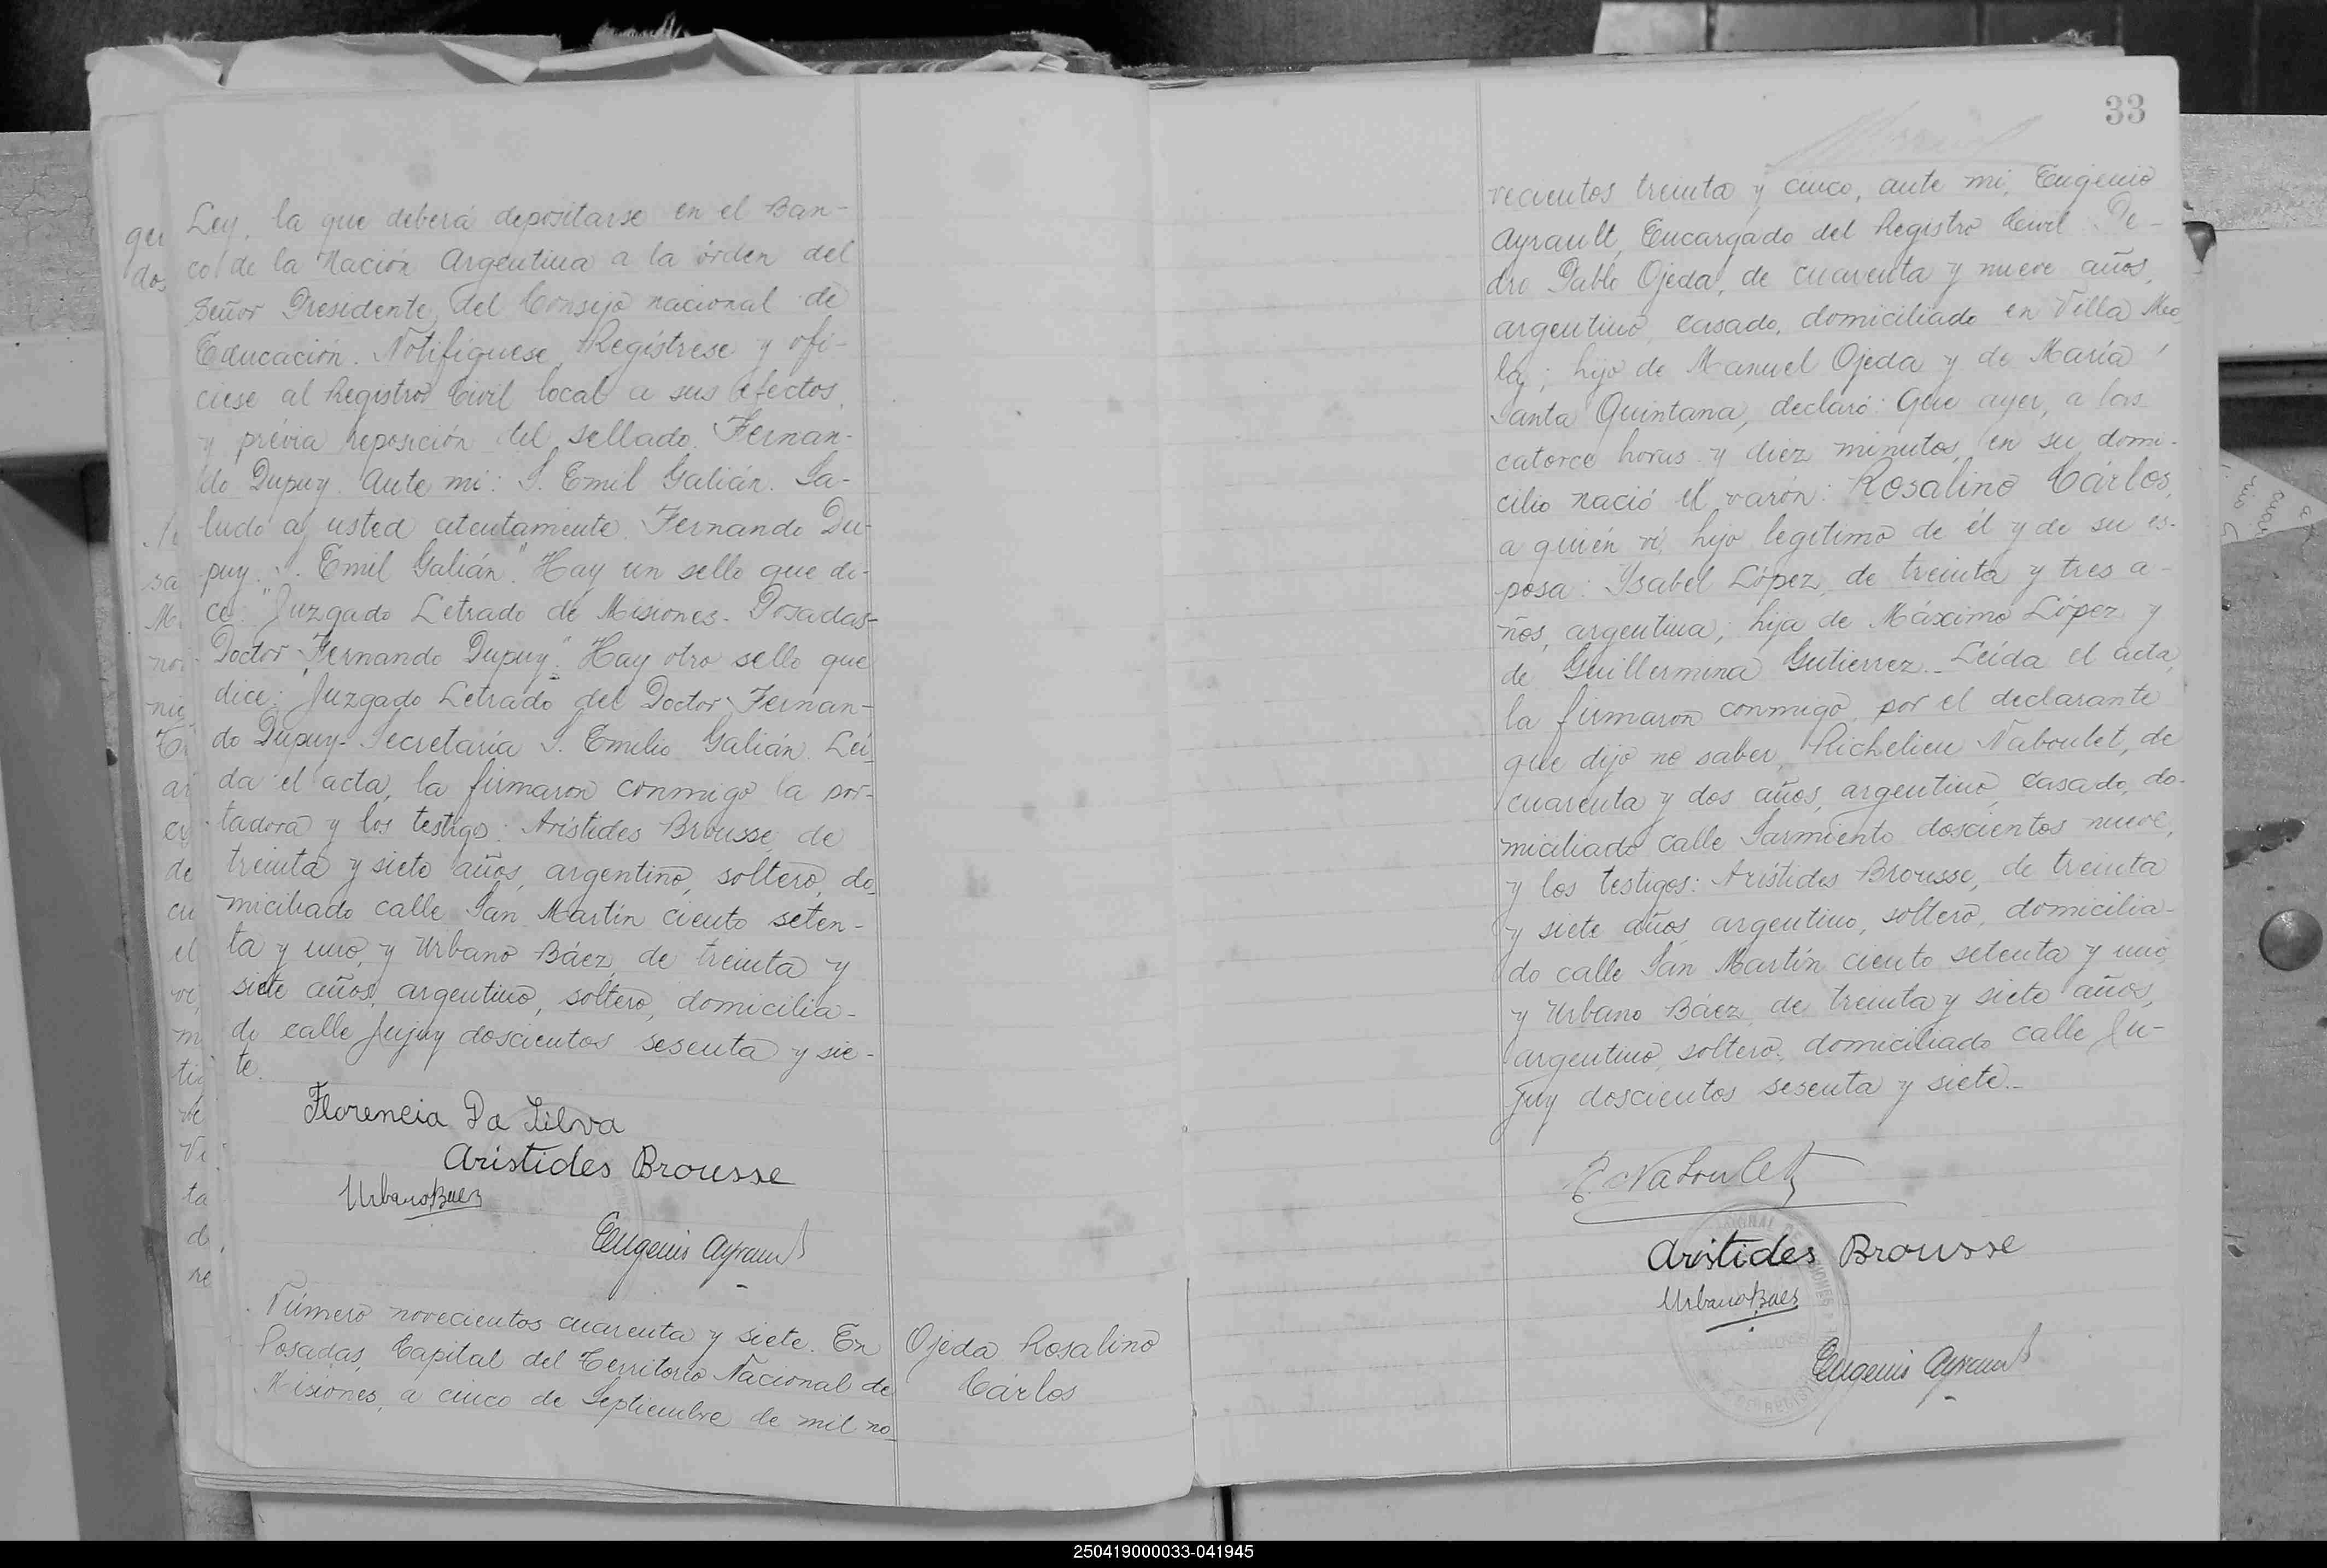 Ley, la que deberá depositarse en el Ban-
co de la Nación Argentina a la órden del
Señor Presidente del Consejo nacional de
Educación. Notifíquese, Regístrese y ofi-
ciese al Registro Civil local a sus efectos,
y prévia reposición del sellado. Fernan-
do Dupuy. Ante mi: S. Emil Galián. Sa-
ludo a usted atentamente. Fernando Du-
puy. S. Emil Galián." Hay un sello que di-
ce: "Juzgado Letrado de Misiones - Posadas-
Doctor Fernando Dupuy". Hay otro sello que
dice: Juzgado Letrado del Doctor Fernan-
do Dupuy- Secretaría S. Emilio Galián. Leí
da el acta, la firmaron conmigo la por-
tadora y los testigos: Arístides Brousse, de
treinta y siete años, argentino, soltero, do
miciliado calle San Martín ciento seten-
ta y uno, y Urbano Báez, de treinta y
siete años, argentino, soltero, domicilia-
do calle Jujuy doscientos sesenta y sie-
te.
Florencia Da Silva
Aristides Brousse
Urbano Baez
Eugenio Ayrault
Número novecientos cuarenta y siete. En
Posadas, Capital del Territorio Nacional de
Misiones, a cinco de Septiembre de mil no
Ojeda Rosalino
Cárlos
33
vecientos treinta y cinco, ante mi, Eugenio
Ayrault, Encargado del Registro Civil Pe-
dro Pablo Ojeda, de cuarenta y nueve años,
argentino, casado, domiciliado en Villa
la; hijo de Manuel Ojeda y de María
Santa Quintana, declaró: Que ayer, a las
catorce horas y diez minutos, en su domi-
cilio nació el varón: Rosalino Cárlos,
a quién ví, hijo legítimo de él y de su es-
posa: Ysabel López, de treinta y tres a-
ños, argentina, hija de Máximo López y
de Guillermina Gutierrez. Leída el acta,
la firmaron conmigo, por el declarante
que dijo no saber, Richelieu Naboulet, de
cuarenta y dos años, argentino, casado, do-
miciliado calle Sarmiento doscientos nueve,
y los testigos: Arístides Brousse, de treinta
y siete años, argentino, soltero, domicilia-
do calle San Martín ciento setenta y uno
y Urbano Báez, de treinta y siete años,
argentino, soltero, domiciliado calle Ju-
juy doscientos sesenta y siete.-
R. Naboulet
Aristides Brousse
Urbano Baez
Eugenio Ayrault
250419000033-041945